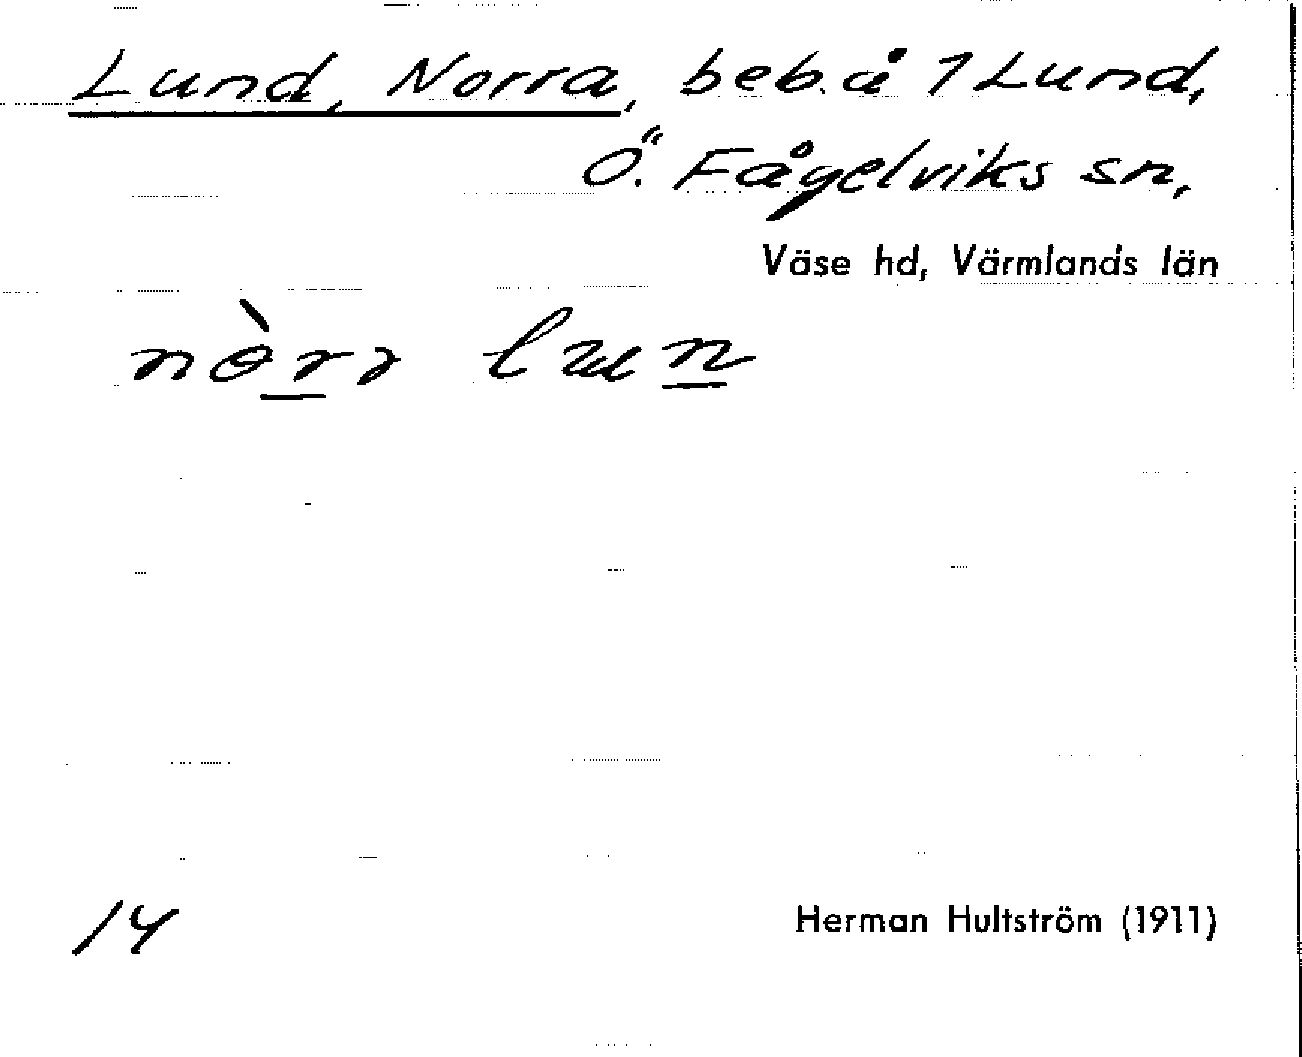 Lund, Norra, beb. å 1 Lund,
Ö. Fågelviks sn,
Väse hd, Värmlands län
nɵ̀rə lun
14 Herman Hultström (1911)